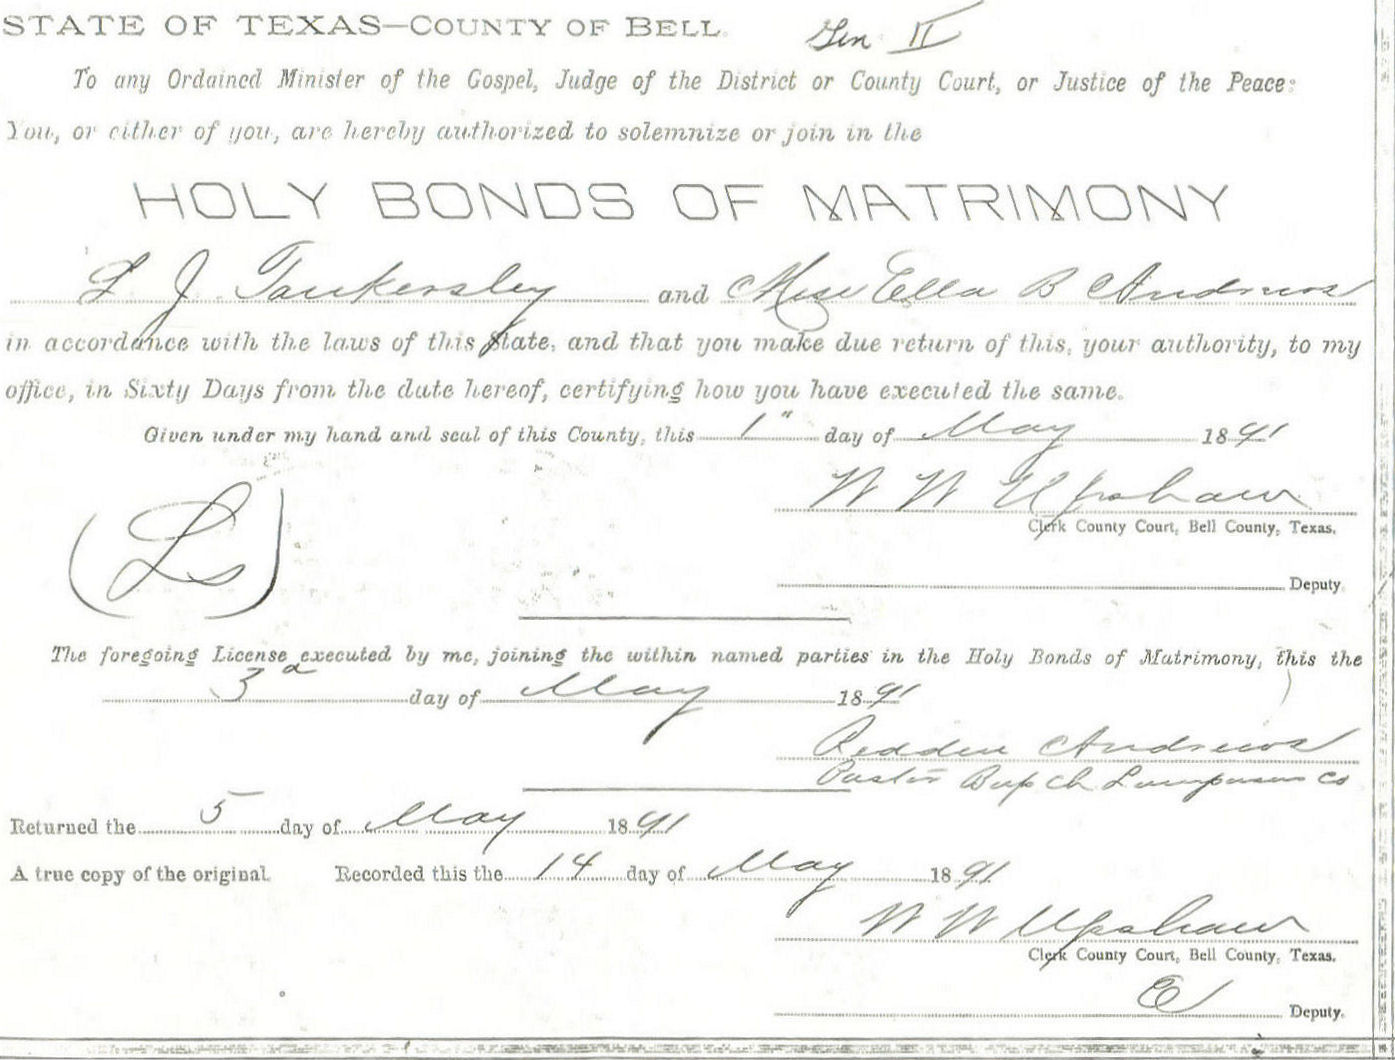 STATE OF TEXAS—COUNTY OF BELL. Gen II
To any Ordained Minister of the Gospel, Judge of the District or County Court, or Justice of the Peace:
You, or either of you, are hereby authorized to solemnize or join in the
HOLY BONDS OF MATRIMONY
L J Tankersley and Miss Ella B Andrews
in accordance with the laws of this State, and that you make due return of this, your authority, to my
office, in Sixty Days from the date hereof, certifying how you have executed the same.
Given under my hand and seal of this County, this 1" day of May 1891
W W Upshaw
Clerk County Court, Bell County, Texas.
(Ls)
Deputy.
The foregoing License executed by me, joining the within named parties in the Holy Bonds of Matrimony, this the
3d day of May 1891
Reddin Andrews
Pastor Bap Ch Lampasas Co
Returned the 5 day of May 1891
A true copy of the original. Recorded this the 14 day of May 1891
W W Upshaw
Clerk County Court, Bell County, Texas.
Deputy.